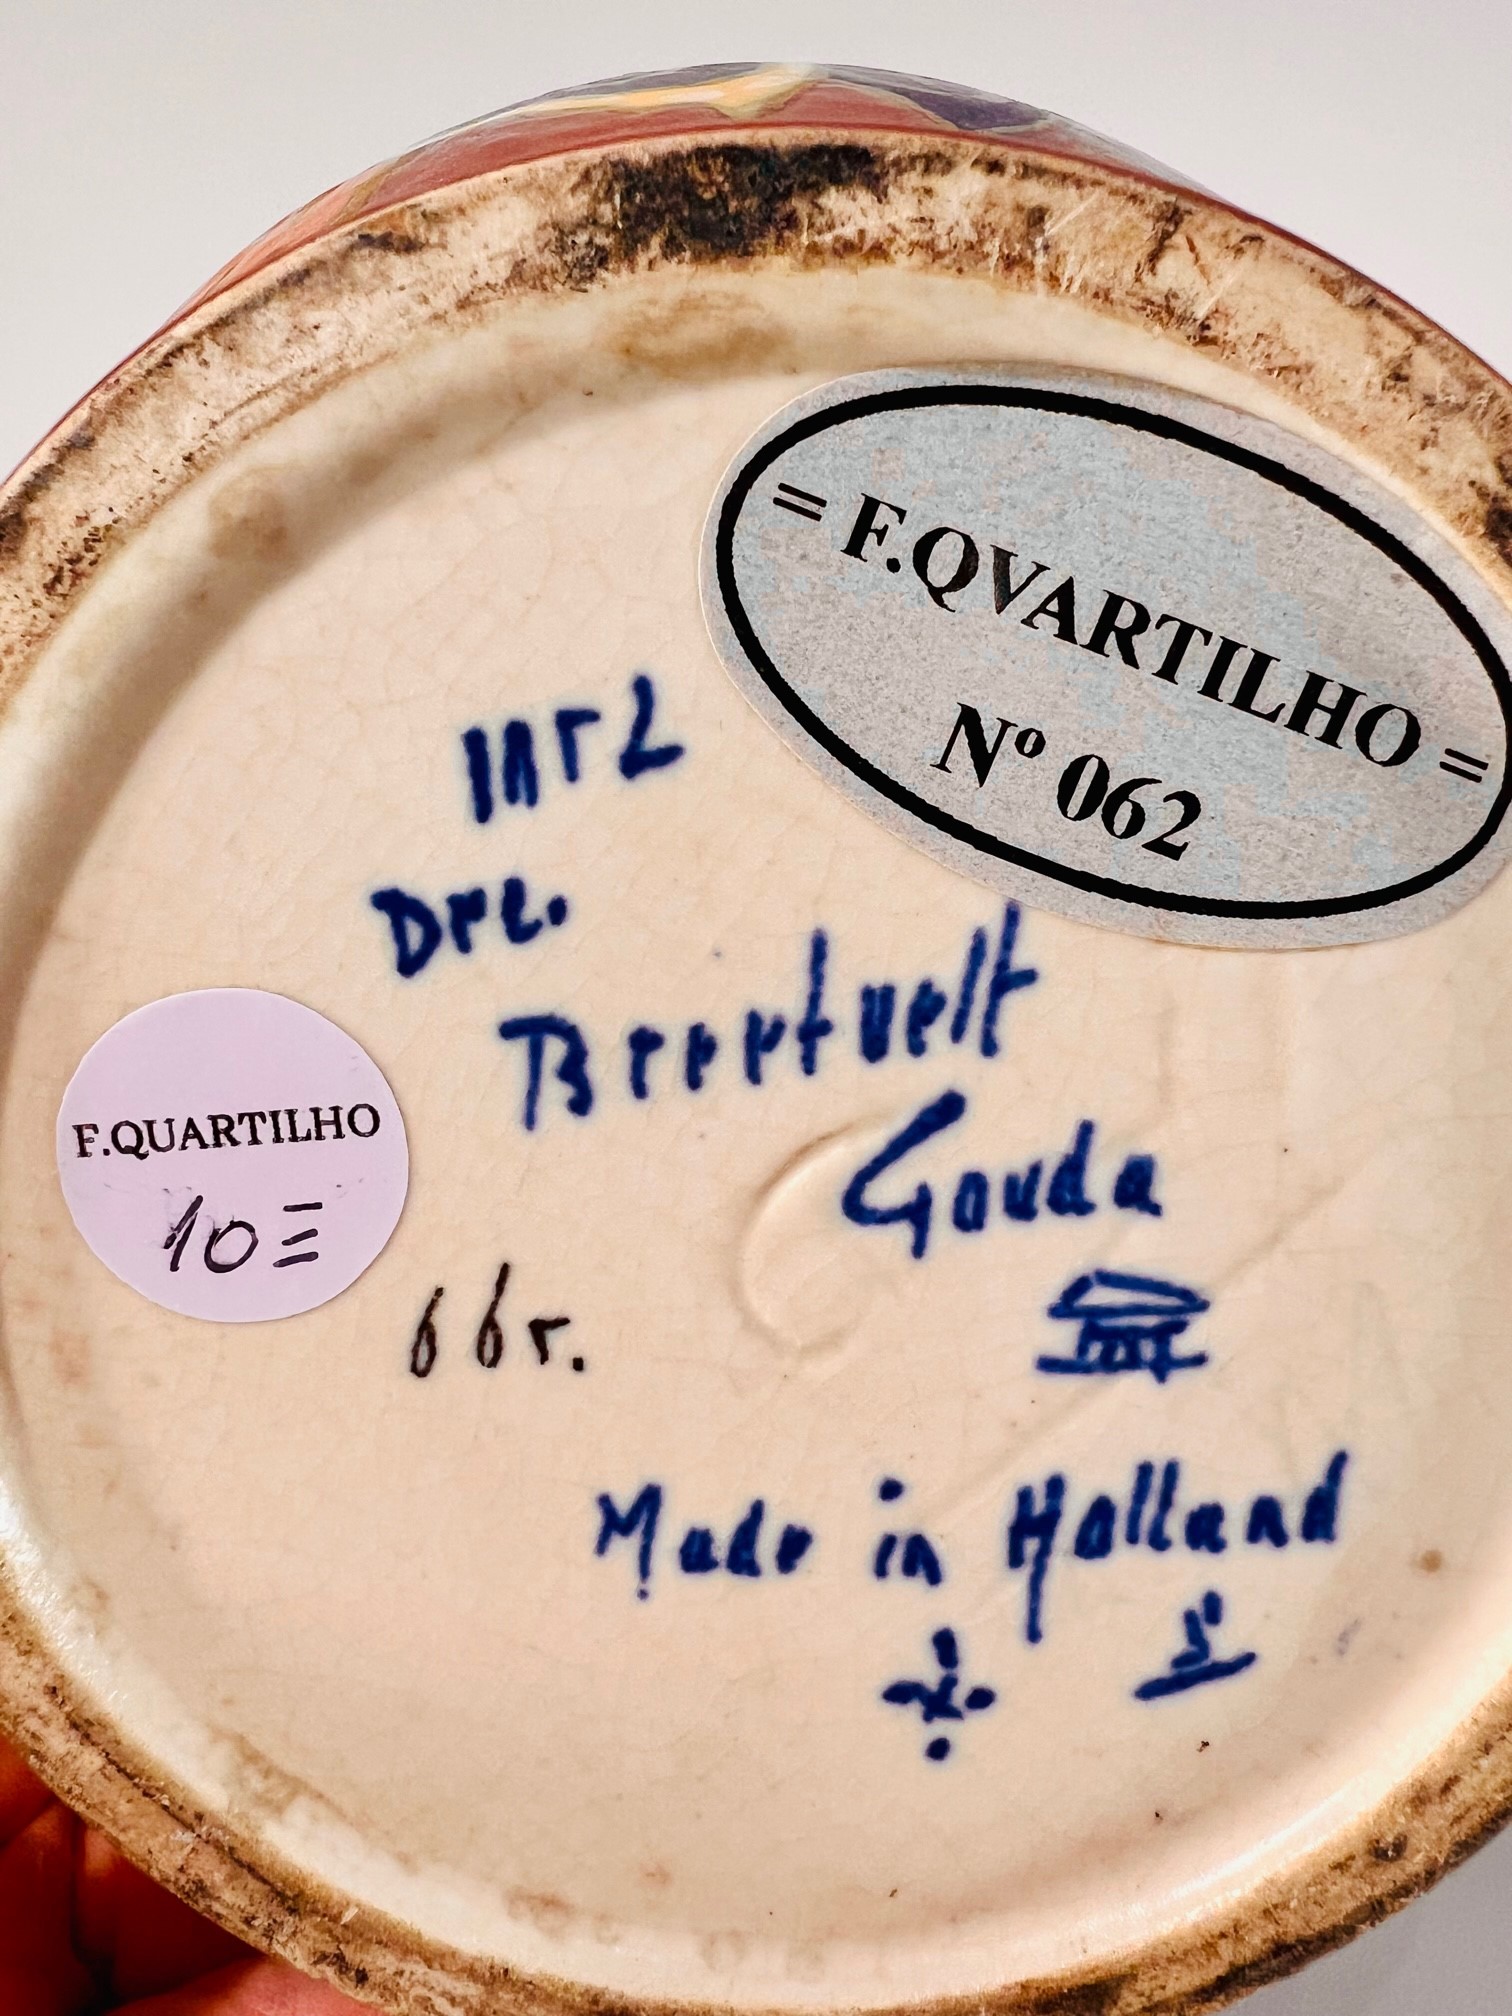 = F.QVARTILHO =
Nº 062
Dec.
Breetvelt
Gouda
F.QUARTILHO
10
66r.
Made in Holland